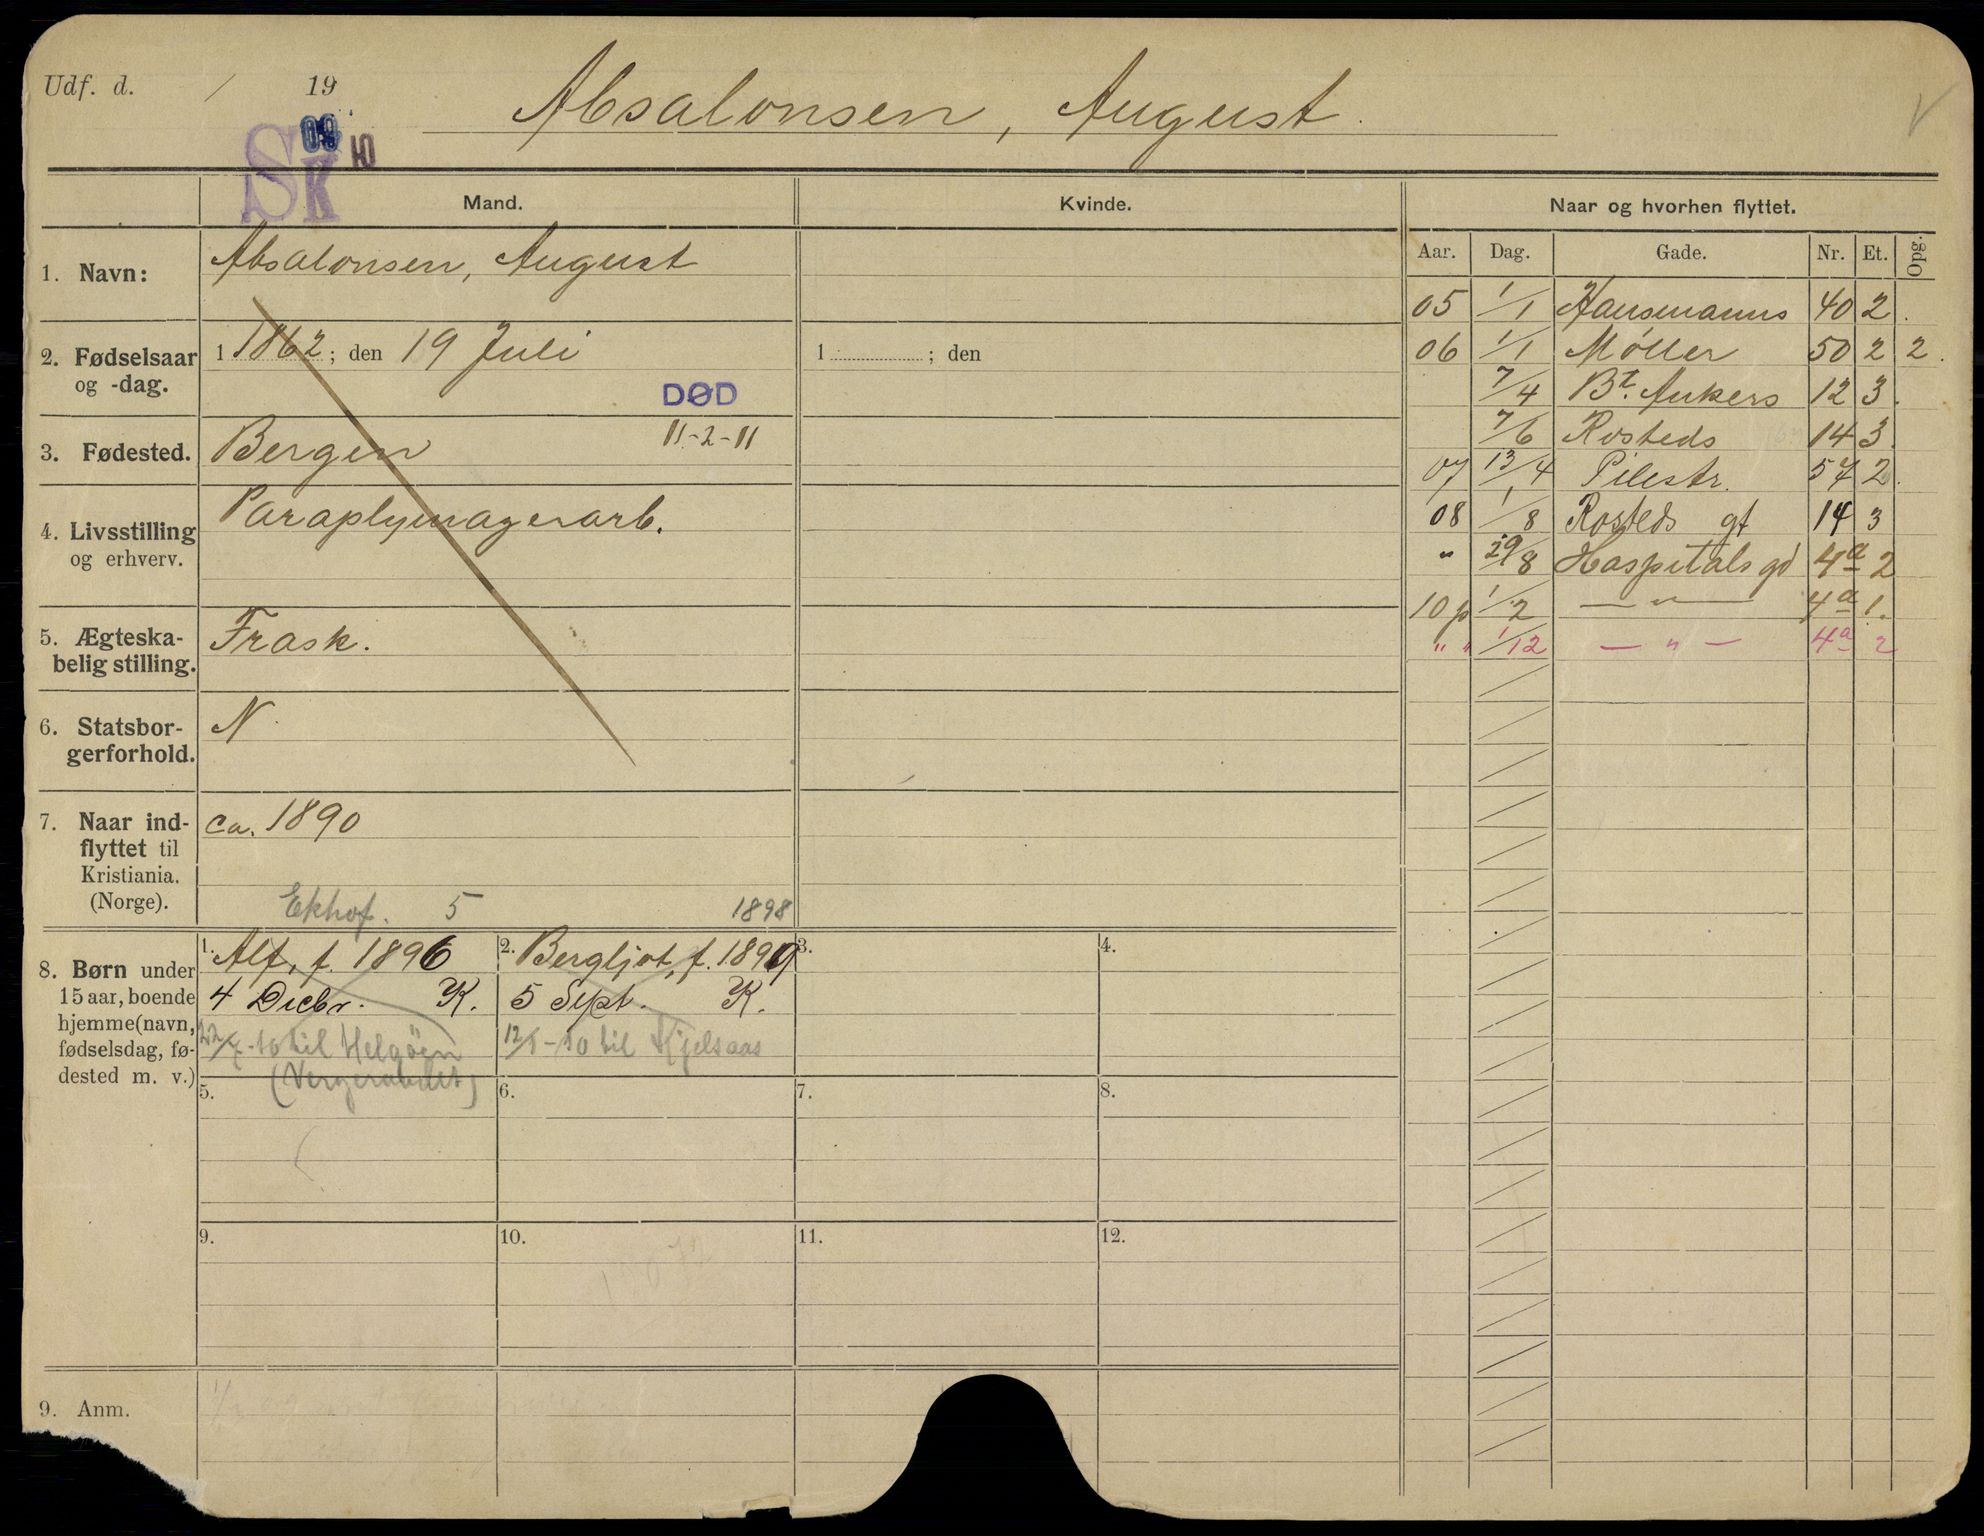 Udf. d. / 19
09
10
SK
Absalonsen, August.
Mand.
Kvinde.
Naar og hvorhen flyttet.
Aar. Dag. Gade. Nr. Et. Opg.
1. Navn:
Absalonsen, August
2. Fødselsaar
og -dag.
1 1862; den 19 Juli
1 ; den
DØD
11-2-11
3. Fødested.
Bergen
4. Livsstilling
og erhverv.
Paraplymagerarb.
5. Ægteska-
belig stilling.
Frask.
6. Statsbor-
gerforhold.
N.
7. Naar ind-
flyttet til
Kristiania.
(Norge).
ca. 1890
Ekhof. 5
1898
8. Børn under
15 aar, boende
hjemme (navn,
fødselsdag, fø-
dested m. v.)
1. Alf, f. 1896
4 Decbr. K.
22/7-10 til Helgøen
2. Bergljot, f. 1899
5 Sept. K.
til Kjelsaas
3.
4.
5.
6.
7.
8.
9.
10.
11.
12.
9. Anm.
05 1/1 Hausmanns 40 2.
06 1/1 Møller 50 2 2.
7/4 Bt. Ankers 12 3.
7/6 Rosteds 14 3.
07 13/4 Pilestr. 57 2.
08 1/8 Rosteds gt 14 3
" 29/8 Hospitals gd 4a 2
10 p 1/2 — " — 4a 1.
" " 1/12 — " — 4a 2